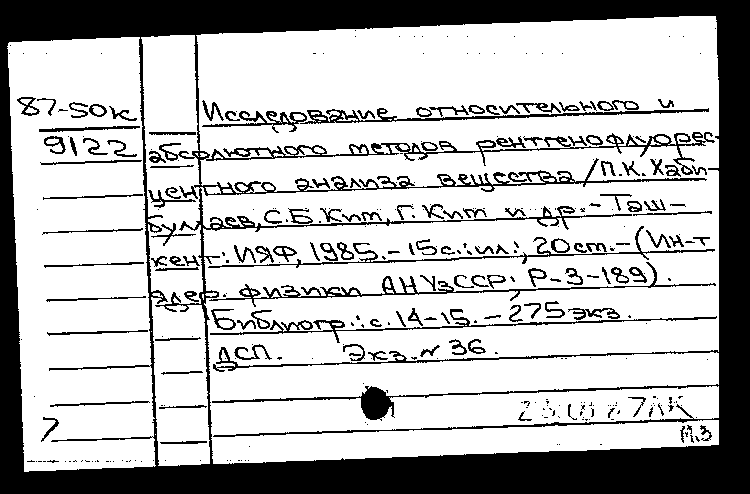 87-50к
9122
Исследование относительного и
абсолютного методов рентгенофлуорес-
центного анализа вещества / П.К. Хаби-
буллаев, С.Б. Ким, Г. Ким и др. - Таш-
кент: ИЯФ, 1985. - 15 с.: ил.; 20 см. - (Ин-т
ядер. физики АН УзССР; Р-3-189).
Библиогр.: с. 14-15. - 275 экз.
ДСП. Экз. № 36.
7
М.З